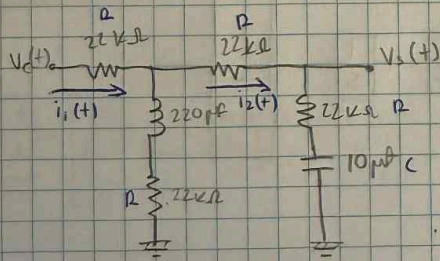 R R
22KΩ 22KΩ
Vc(t) Vs(t)
i₁(t) 220µf i₂(t) 22KΩ R
R 22KΩ 10µf C